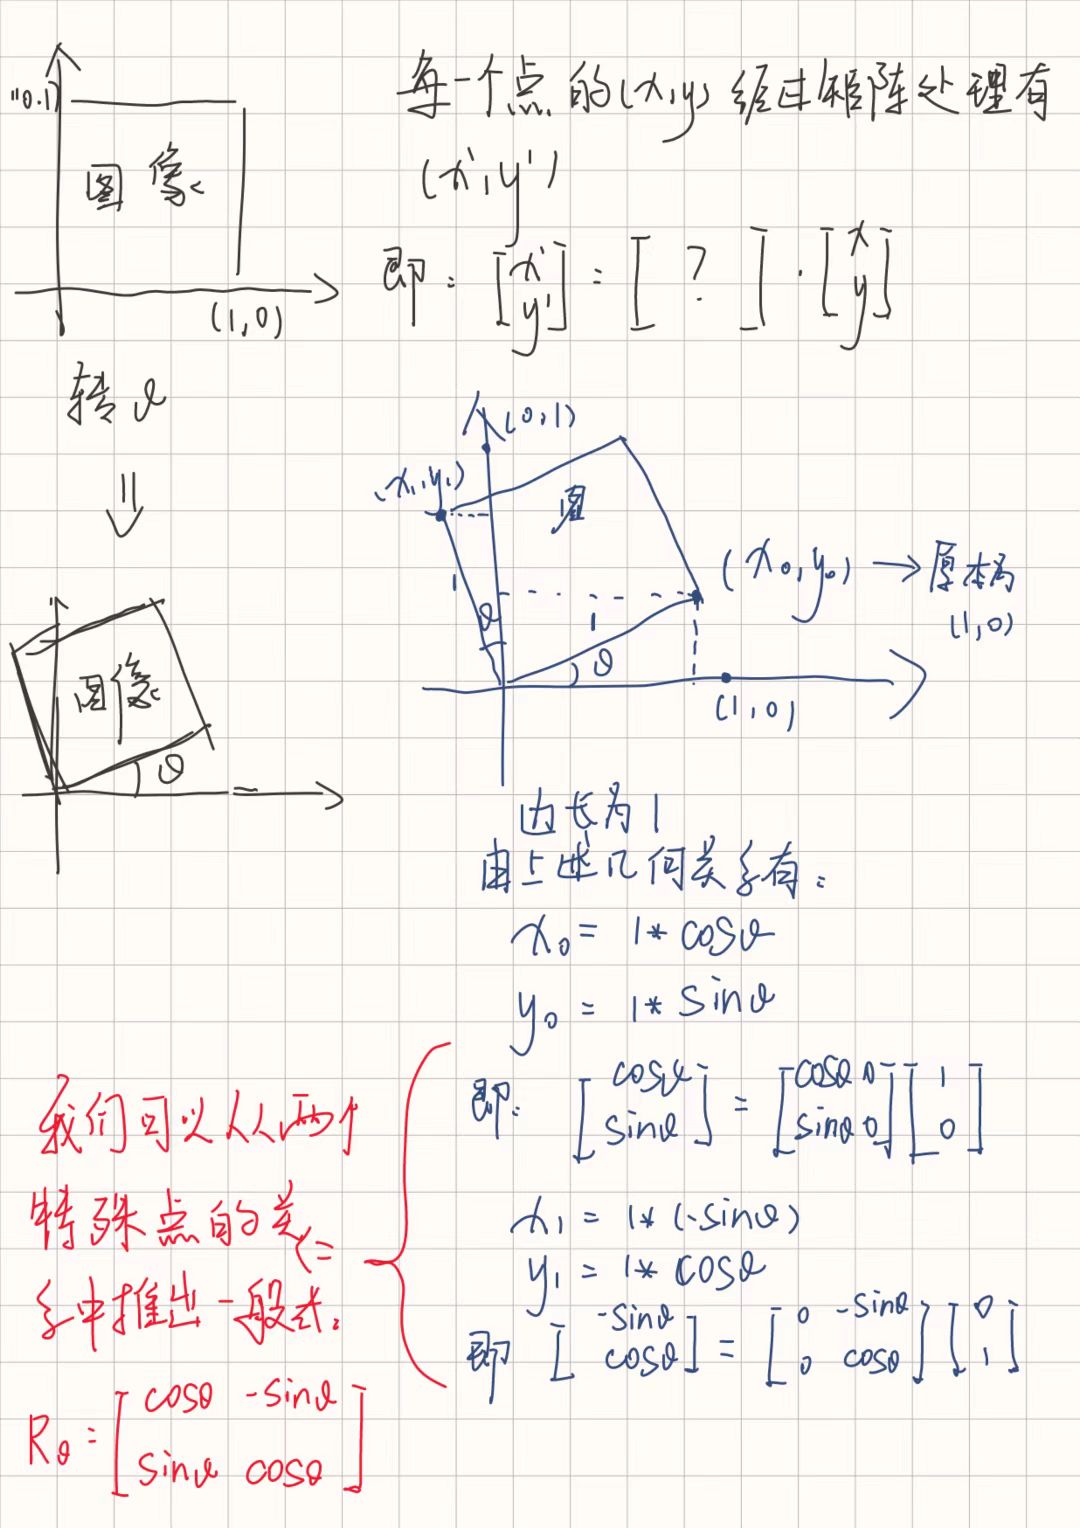 每一个点的(x,y)经过矩阵处理有
(x',y')
即: [x' y'] = [ ? ] · [x y]
(0,1)
图像
(1,0)
转θ
图像
θ
(0,1)
(x₁,y₁)
(x₀,y₀) → 原本为
(1,0)
1
θ
1
θ
(1,0)
边长为1
由上述几何关系有:
x₀ = 1*cosθ
y₀ = 1*sinθ
即: [cosθ sinθ] = [cosθ 0 sinθ 0] [1 0]
x₁ = 1*(-sinθ)
y₁ = 1*cosθ
即 [-sinθ cosθ] = [0 -sinθ 0 cosθ] [0 1]
我们可以从两个
特殊点的关
系中推出一般式.
Rθ = [cosθ -sinθ sinθ cosθ]